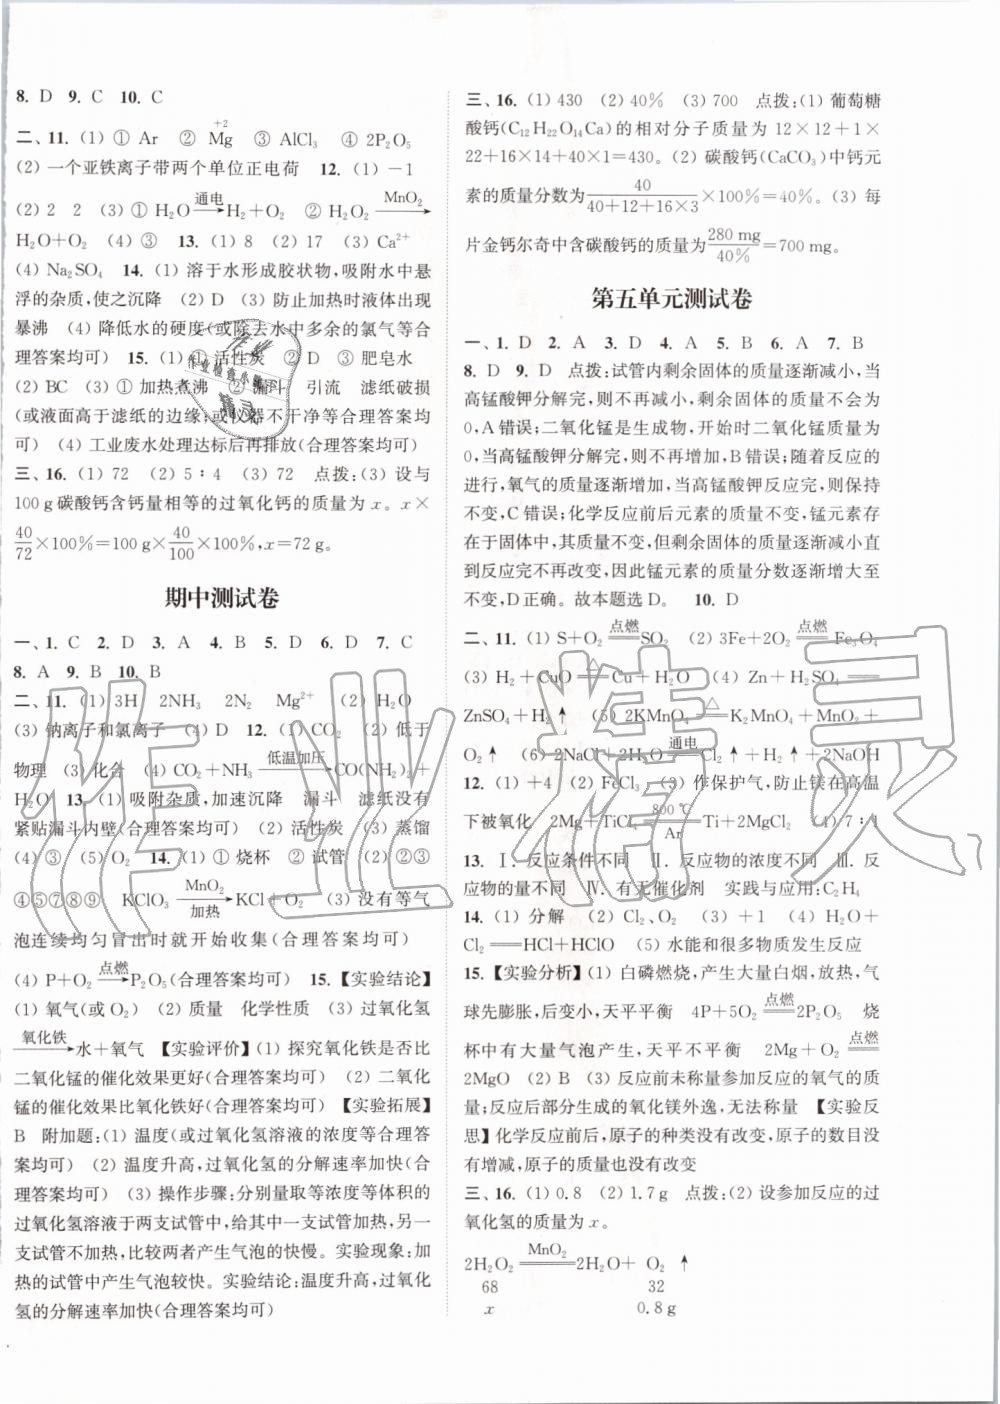 8. D 9. C 10. C
二、11. (1) ① Ar ② Mg(+2) ③ AlCl₃ ④ 2P₂O₅
(2) 一个亚铁离子带两个单位正电荷 12. (1) －1
(2) 2 2 (3) ① H₂O —通电→ H₂＋O₂ ② H₂O₂ —MnO₂→
H₂O＋O₂ (4) ③ 13. (1) 8 (2) 17 (3) Ca²⁺
(4) Na₂SO₄ 14. (1) 溶于水形成胶状物,吸附水中悬
浮的杂质,使之沉降 (2) D (3) 防止加热时液体出现
暴沸 (4) 降低水的硬度(或除去水中多余的氯气等合
理答案均可) 15. (1) ① 活性炭 ② D ③ 肥皂水
(2) BC (3) ① 加热煮沸 ② 漏斗 引流 滤纸破损
(或液面高于滤纸的边缘;或仪器不干净等合理答案均
可) (4) 工业废水处理达标后再排放(合理答案均可)
三、16. (1) 72 (2) 5∶4 (3) 72 点拨:(3) 设与
100 g 碳酸钙含钙量相等的过氧化钙的质量为 x。x×
40/72×100%＝100 g×40/100×100%,x＝72 g。
期中测试卷
一、1. C 2. D 3. A 4. B 5. D 6. D 7. C
8. A 9. B 10. B
二、11. (1) 3H 2NH₃ 2N₂ Mg²⁺ (2) H₂O
(3) 钠离子和氯离子 (4) D 12. (1) CO₂ (2) 低于
物理 (3) 化合 (4) CO₂＋NH₃ —低温加压→ CO(NH₂)₂＋
H₂O 13. (1) 吸附杂质,加速沉降 漏斗 滤纸没有
紧贴漏斗内壁(合理答案均可) (2) 活性炭 (3) 蒸馏
(4) ③ (5) O₂ 14. (1) ① 烧杯 ② 试管 (2) ②③
④⑤⑦⑧⑨ KClO₃ —MnO₂/加热→ KCl＋O₂ (3) 没有等气
泡连续均匀冒出时就开始收集(合理答案均可)
(4) P＋O₂ —点燃→ P₂O₅(合理答案均可) 15. 【实验结论】
(1) 氧气(或 O₂) (2) 质量 化学性质 (3) 过氧化氢
—氧化铁→ 水＋氧气 【实验评价】(1) 探究氧化铁是否比
二氧化锰的催化效果更好(合理答案均可) (2) 二氧化
锰的催化效果比氧化铁好(合理答案均可) 【实验拓展】
B 附加题:(1) 温度(或过氧化氢溶液的浓度等合理答
案均可) (2) 温度升高,过氧化氢的分解速率加快(合
理答案均可) (3) 操作步骤:分别量取等浓度等体积的
过氧化氢溶液于两支试管中,给其中一支试管加热,另一
支试管不加热,比较两者产生气泡的快慢。实验现象:加
热的试管中产生气泡较快。实验结论:温度升高,过氧化
氢的分解速率加快(合理答案均可)
三、16. (1) 430 (2) 40% (3) 700 点拨:(1) 葡萄糖
酸钙(C₁₂H₂₂O₁₄Ca)的相对分子质量为 12×12＋1×
22＋16×14＋40×1＝430。(2) 碳酸钙(CaCO₃)中钙元
素的质量分数为 40/(40＋12＋16×3)×100%＝40%。(3) 每
片金钙尔奇中含碳酸钙的质量为 280 mg/40%＝700 mg。
第五单元测试卷
一、1. D 2. A 3. D 4. A 5. B 6. A 7. B
8. D 9. D 点拨:试管内剩余固体的质量逐渐减小,当
高锰酸钾分解完,则不再减小,剩余固体的质量不会为
0,A 错误;二氧化锰是生成物,开始时二氧化锰质量为
0,当高锰酸钾分解完,则不再增加,B 错误;随着反应的
进行,氧气的质量逐渐增加,当高锰酸钾反应完,则保持
不变,C 错误;化学反应前后元素的质量不变,锰元素存
在于固体中,其质量不变,但剩余固体的质量逐渐减小直
到反应完不再改变,因此锰元素的质量分数逐渐增大至
不变,D 正确。故本题选 D。 10. D
二、11. (1) S＋O₂ ═点燃═ SO₂ (2) 3Fe＋2O₂ ═点燃═ Fe₃O₄
(3) H₂＋CuO ═△═ Cu＋H₂O (4) Zn＋H₂SO₄ ═
ZnSO₄＋H₂↑ (5) 2KMnO₄ ═△═ K₂MnO₄＋MnO₂＋
O₂↑ (6) 2NaCl＋2H₂O ═通电═ Cl₂↑＋H₂↑＋2NaOH
12. (1) ＋4 (2) FeCl₃ (3) 作保护气,防止镁在高温
下被氧化 2Mg＋TiCl₄ ═800 ℃/Ar═ Ti＋2MgCl₂ (4) 7∶1
13. Ⅰ. 反应条件不同 Ⅱ. 反应物的浓度不同 Ⅲ. 反
应物的量不同 Ⅳ. 有无催化剂 实践与应用:C₂H₄
14. (1) 分解 (2) Cl₂、O₂ (3) ＋1 (4) H₂O＋
Cl₂ ═ HCl＋HClO (5) 水能和很多物质发生反应
15. 【实验分析】(1) 白磷燃烧,产生大量白烟,放热,气
球先膨胀,后变小,天平平衡 4P＋5O₂ ═点燃═ 2P₂O₅ 烧
杯中有大量气泡产生,天平不平衡 2Mg＋O₂ ═点燃═
2MgO (2) B (3) 反应前未称量参加反应的氧气的质
量;反应后部分生成的氧化镁外逸,无法称量 【实验反
思】化学反应前后,原子的种类没有改变,原子的数目没
有增减,原子的质量也没有改变
三、16. (1) 0.8 (2) 1.7 g 点拨:(2) 设参加反应的过
氧化氢的质量为 x。
2H₂O₂ ═MnO₂═ 2H₂O＋ O₂ ↑
68 32
x 0.8 g
作业精灵